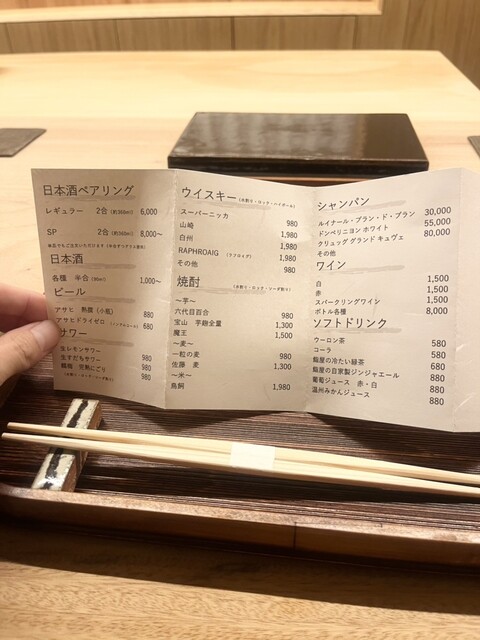 日本酒ペアリング
レギュラー 2合(約360ml) 6,000
SP 2合(約360ml) 8,000〜
日本酒
各種 半合(90ml) 1,000〜
ビール
アサヒ 熟撰(小瓶) 880
アサヒドライゼロ(ノンアルコール) 680
サワー
生レモンサワー 980
生すだちサワー 980
鶴梅 完熟にごり 980
ウイスキー(水割り・ロック・ハイボール)
スーパーニッカ 980
山崎 1,980
白州 1,980
RAPHROAIG(ラフロイグ) 1,980
その他 980
焼酎(水割り・ロック・ソーダ割り)
〜芋〜
六代目百合 980
宝山 芋麹全量 1,300
魔王 1,500
〜麦〜
一粒の麦 980
佐藤 麦 1,300
〜米〜
鳥飼 1,980
シャンパン
ルイナール・ブラン・ド・ブラン 30,000
ドンペリニヨン ホワイト 55,000
クリュッグ グランド キュヴェ 80,000
その他
ワイン
白 1,500
赤 1,500
スパークリングワイン 1,500
ボトル各種 8,000
ソフトドリンク
ウーロン茶 580
コーラ 580
鮨屋の冷たい緑茶 880
鮨屋の自家製ジンジャエール 880
葡萄ジュース 赤・白 880
温州みかんジュース 880